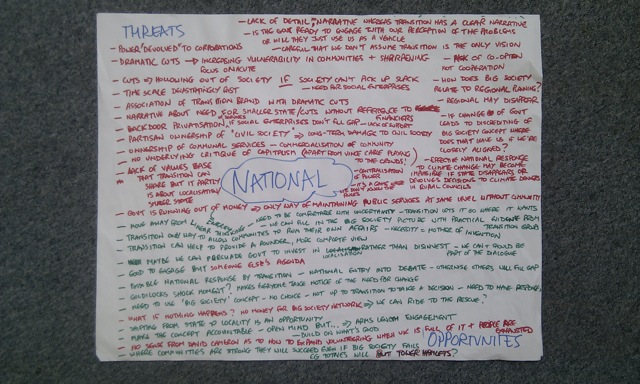 THREATS
- LACK OF DETAIL / NARRATIVE WHEREAS TRANSITION HAS A CLEAR NARRATIVE
- IS THE GOVT READY TO ENGAGE WITH OUR PERCEPTION OF THE PROBLEMS
OR WILL THEY JUST USE US AS A VEHICLE
- POWER 'DEVOLVED' TO CORPORATIONS
- CAREFUL THAT WE DON'T ASSUME TRANSITION IS THE ONLY VISION
- DRAMATIC CUTS → INCREASING VULNERABILITY IN COMMUNITIES + SHARPENING
FOCUS ON ACUTE
- RISK OF CO-OPTION
NOT COOPERATION
- CUTS → HOLLOWING OUT OF SOCIETY IF SOCIETY CAN'T PICK UP SLACK
- NEED FOR SOCIAL ENTERPRISES
- HOW DOES BIG SOCIETY
RELATE TO REGIONAL PLANNING?
- TIME SCALE DEVASTINGLY FAST
- REGIONAL MAY DISAPPEAR
- ASSOCIATION OF TRANSITION BRAND WITH DRAMATIC CUTS
- NARRATIVE ABOUT NEED FOR SMALLER STATE/CUTS WITHOUT REFERENCE TO
FINANCIERS
- IF CHANGE OF GOVT
LEADS TO DISCREDITING OF
BIG SOCIETY CONCEPT WHERE
DOES THAT LEAVE US IF WE'RE
CLOSELY ALIGNED?
- BACKDOOR PRIVATISATION, IF SOCIAL ENTERPRISES DON'T FILL GAP
- LACK OF SUPPORT
- PARTISAN OWNERSHIP OF "CIVIL SOCIETY" → LONG-TERM DAMAGE TO CIVIL SOCIETY
- OWNERSHIP OF COMMUNAL SERVICES - COMMERCIALISATION OF COMMUNITY
- NO UNDERLYING CRITIQUE OF CAPITALISM (APART FROM VINCE CABLE PLAYING
TO THE CROWDS!)
- LACK OF VALUES BASE
THAT TRANSITION CAN
SHARE BUT IT PARTLY
IS ABOUT LOCALISATION
SMALLER STATE
NATIONAL
- CENTRALISATION
OF POWER
- EFFECTIVE NATIONAL RESPONSE
TO CLIMATE CHANGE MAY BECOME
IMPOSSIBLE IF STATE DISAPPEARS OR
DEVOLVES DECISIONS TO CLIMATE DENIERS
IN RURAL COUNCILS
- GOVT IS RUNNING OUT OF MONEY → ONLY WAY OF MAINTAINING PUBLIC SERVICES AT SAME LEVEL WITHOUT COMMUNITY
- NEED TO BE COMFORTABLE WITH UNCERTAINTY - TRANSITION LETS IT GO WHERE IT WANTS
- MOVE AWAY FROM LINEAR THINKING
- WE CAN FILL IN THE BIG SOCIETY PICTURE WITH PRACTICAL EVIDENCE FROM
TRANSITION GROUPS
- TRANSITION ONLY WAY TO ALLOW COMMUNITIES TO RUN THEIR OWN AFFAIRS - NECESSITY = MOTHER OF INVENTION
- TRANSITION CAN HELP TO PROVIDE A ROUNDER, MORE COMPLETE VIEW
- MAYBE WE CAN PERSUADE GOVT TO INVEST IN LOCALISATION RATHER THAN DISINVEST - WE CAN/SHOULD BE
PART OF THE DIALOGUE
- GOOD TO ENGAGE BUT SOMEONE ELSE'S AGENDA
- POSSIBLE NATIONAL RESPONSE BY TRANSITION - NATIONAL ENTRY INTO DEBATE - OTHERWISE OTHERS WILL FILL GAP
- GOLDILOCKS SHOCK MOMENT? MAKES EVERYONE TAKE NOTICE OF THE NEED FOR CHANGE
- NEED TO USE 'BIG SOCIETY' CONCEPT - NO CHOICE - NOT UP TO TRANSITION TO TAKE A DECISION - NEED TO HAVE RESPONSE
- WHAT IF NOTHING HAPPENS? NO MONEY FOR BIG SOCIETY NETWORK → WE CAN RIDE TO THE RESCUE?
- SHIFTING FROM STATE → LOCALITY IS AN OPPORTUNITY - ARMS LENGTH ENGAGEMENT
- MAKE THE CONCEPT ACCOUNTABLE - OPEN MIND BUT...
- BUILD ON WHAT'S GOOD
- NO SENSE FROM DAVID CAMERON AS TO HOW TO EXPAND VOLUNTEERING WHEN UK IS FULL OF IT + PEOPLE ARE
EXHAUSTED
- WHERE COMMUNITIES ARE STRONG THEY WILL SUCCEED EVEN IF BIG SOCIETY FAILS
EG TOTNES WILL BUT TOWER HAMLETS?
OPPORTUNITIES